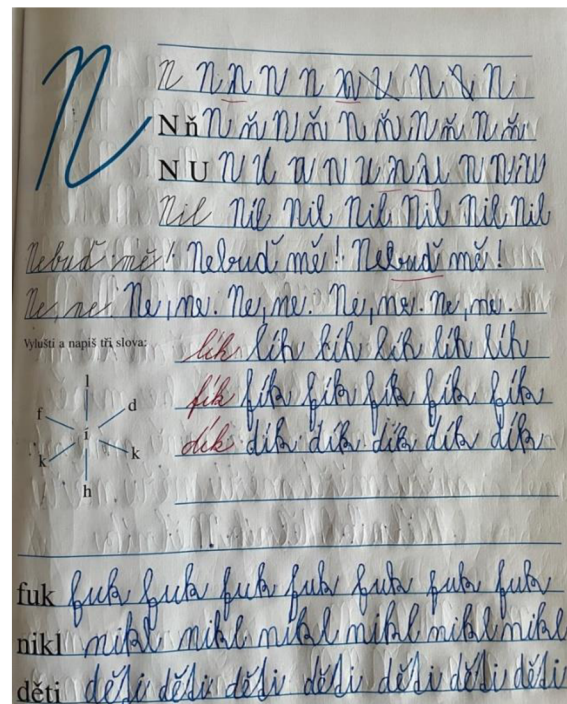 N
N N N N N N U N N N
N ň N ň N ň N ň N ň N ň
N U N U N U N U N U N N U
Nil Nil Nil Nil Nil Nil Nil
Nebuď mě! Nebuď mě! Nebuď mě!
Ne, ne. Ne, ne. Ne, ne. Ne, ne. Ne, ne.
Vylušti a napiš tři slova:
lík lík lík lík lík lík
fík fík fík fík fík fík
dík dík dík dík dík dík
l
f d
í
k k
h
fuk fuk fuk fuk fuk fuk fuk fuk
nikl nikl nikl nikl nikl nikl nikl
děti děti děti děti děti děti děti děti